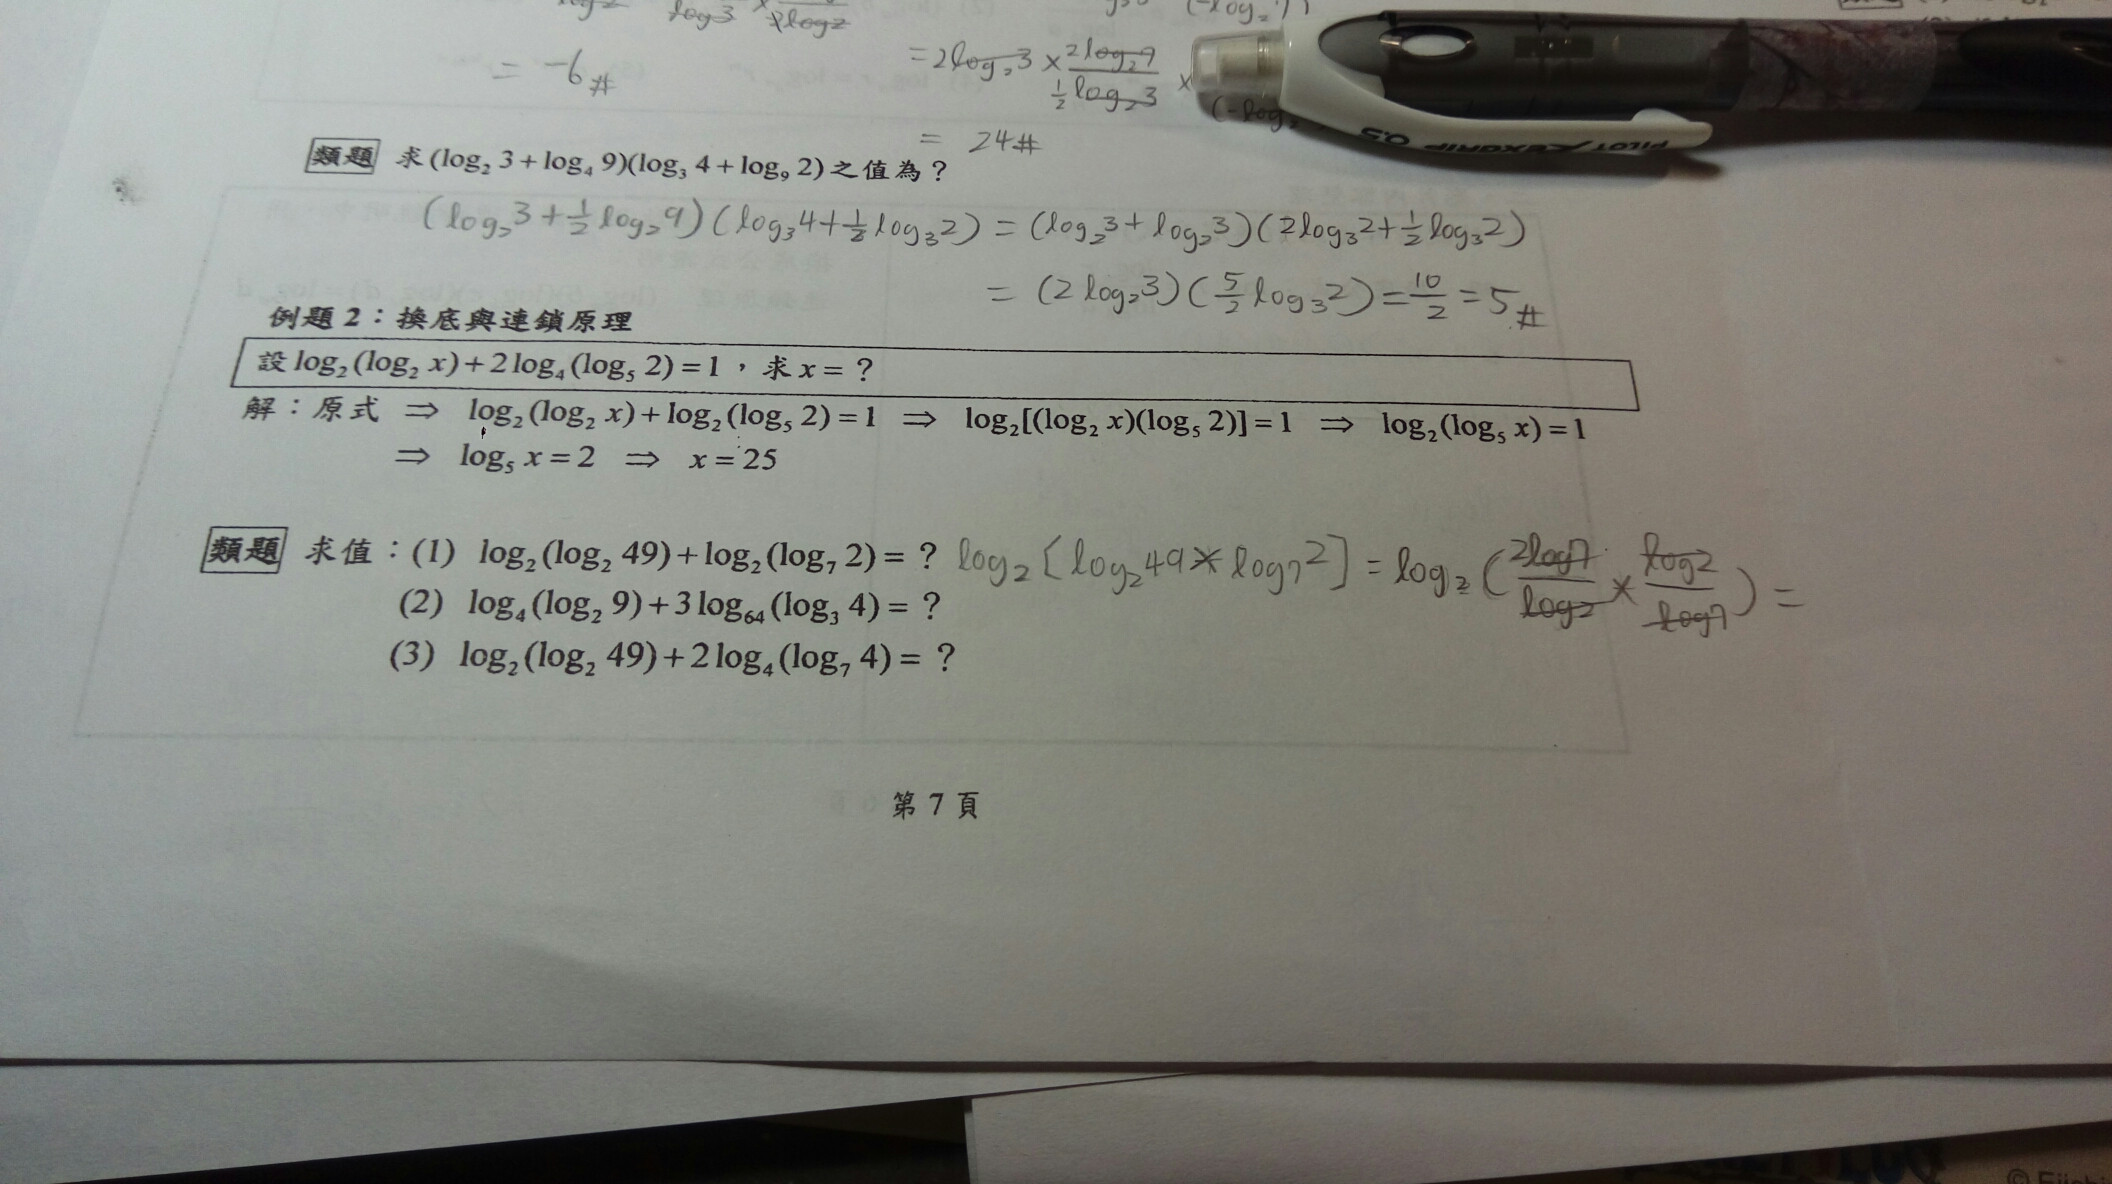 = -6 #
= 2log₂3 × 2log₂7 / ½log₂3 ×
= 24 #
PILOT 0.5
類題 求(log₂ 3 + log₄ 9)(log₃ 4 + log₉ 2)之值為？
(log₂3 + ½log₂9)(log₃4 + ½log₃2) = (log₂3 + log₂3)(2log₃2 + ½log₃2)
= (2log₂3)(5/2 log₃2) = 10/2 = 5 #
例題 2：換底與連鎖原理
設 log₂(log₂ x) + 2log₄(log₅ 2) = 1，求 x = ？
解：原式 ⇒ log₂(log₂ x) + log₂(log₅ 2) = 1 ⇒ log₂[(log₂ x)(log₅ 2)] = 1 ⇒ log₂(log₅ x) = 1
⇒ log₅ x = 2 ⇒ x = 25
類題 求值：(1) log₂(log₂ 49) + log₂(log₇ 2) = ？ log₂[log₂49 × log₇2] = log₂(2log7/log2 × log2/log7) =
(2) log₄(log₂ 9) + 3log₆₄(log₃ 4) = ？
(3) log₂(log₂ 49) + 2log₄(log₇ 4) = ？
第 7 頁